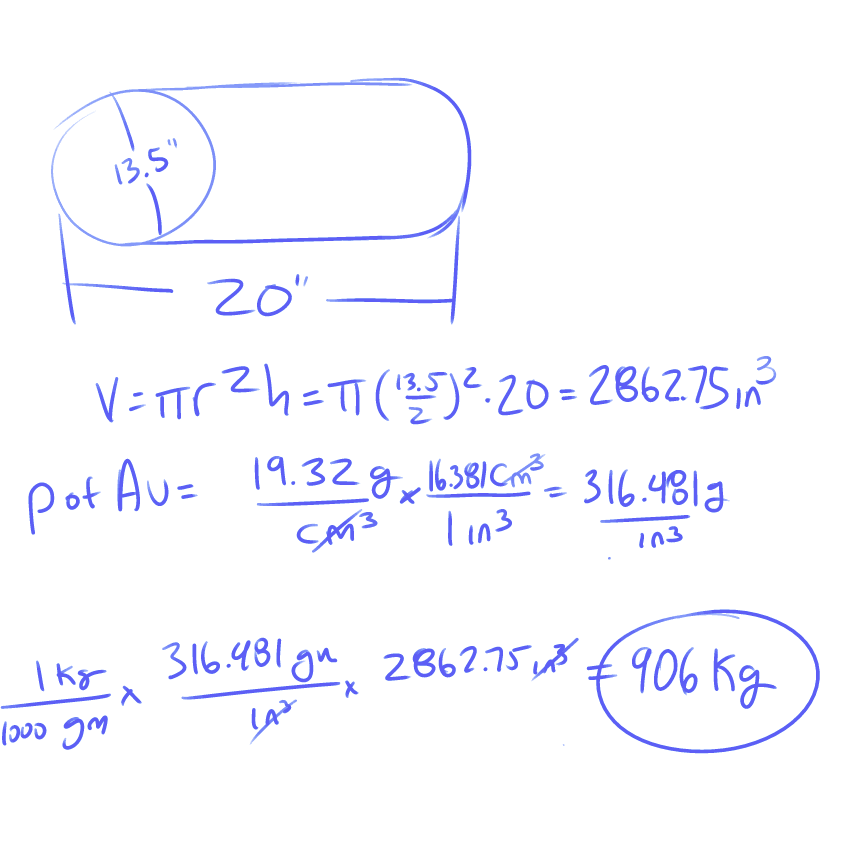 13.5"
20"
V = πr²h = π(13.5/2)²·20 = 2862.75 in³
ρ of Au = 19.32 g/cm³ x 16.381 cm³/1 in³ = 316.481g/in³
1 Kg/1000 gm x 316.481 gm/in³ x 2862.75 in³ = 906 Kg